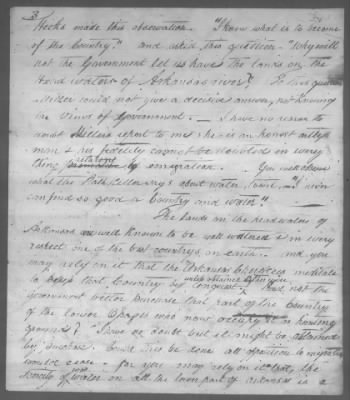 3
Hicks made this observation. "I know what is to become
of the Country." and asked this question - "Why will
not the Government let us have the lands on the
Head waters of Arkansas river? To this question
Miller could not give a decisive answer, not knowing
the views of Government. — I have no reason to
doubt Millers report to me she is an honest
man & his fidelity cannot be doubted in every
thing relative to emigration. You
what the Path Killer says about water, Towit, "I never
can find so good a Country and water" —
The lands on the head waters of
Arkansas are well known to be well watered & in every
respect one of the best countrys on earth. and you
may rely on it that the Arkansas Cherokees meditate
to keep that Country by conquest. Had not the
government better purchase that part of the Country
of the lower Osages who now occupy it as hunting
ground? I have no doubt but it might be obtained
by purchase. Could this be done all opposition to
would cease. for you may rely on it that, the
scarcity of water in all the lower part of Arkansas is a